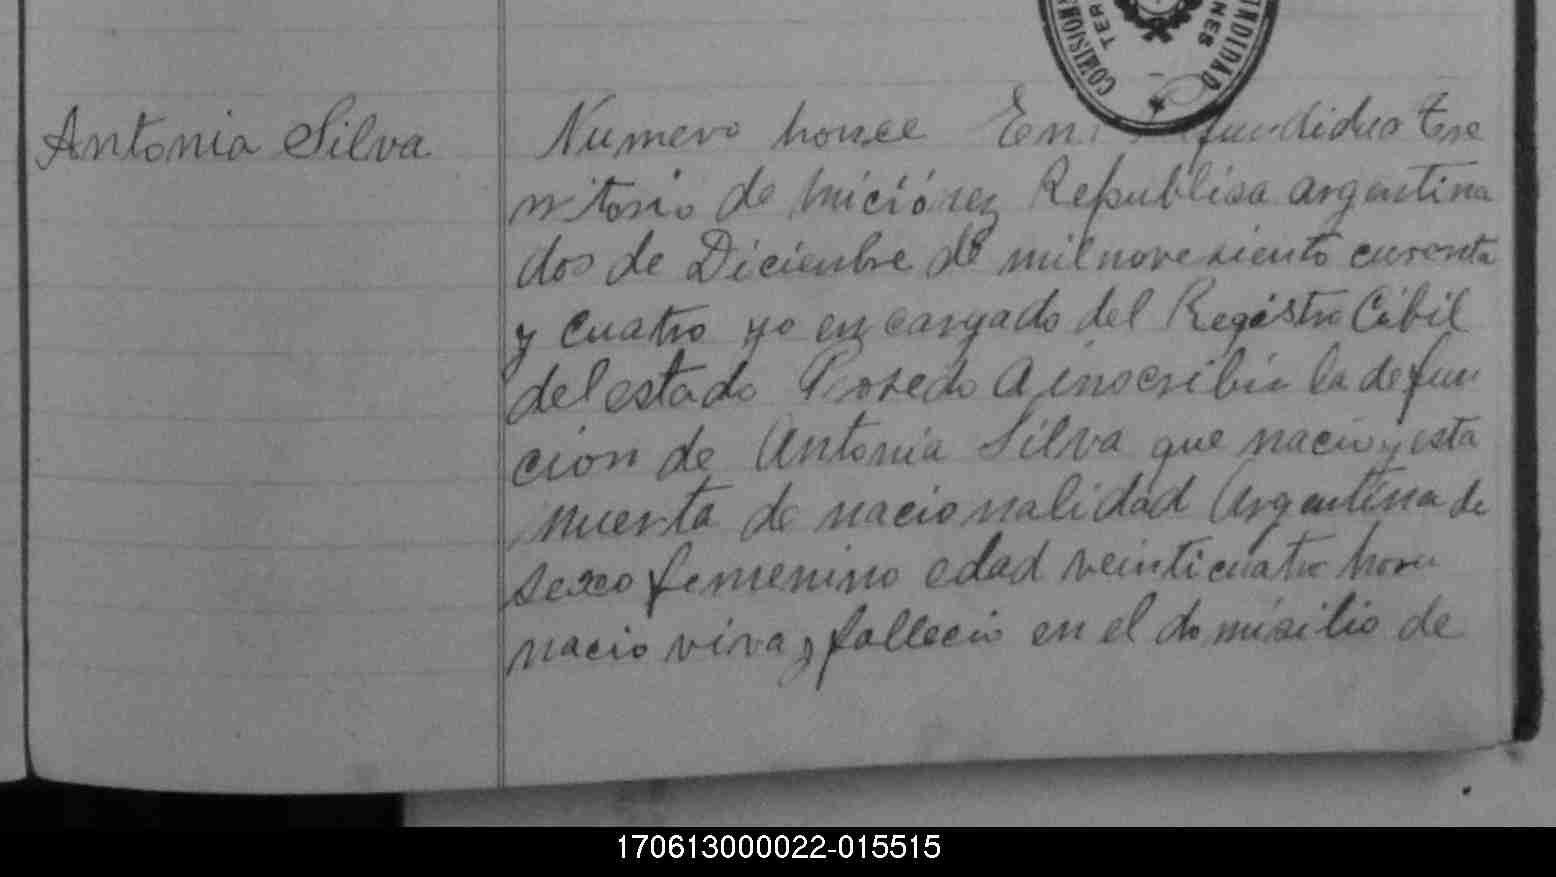 COMISION INDIDAD
TER NES
Antonia Silva
Numero honce En fundidas Terre
ritorio de Miciónez Republica argentina
dos de Diciembre de mil novesiento curenta
y cuatro yo en cargado del Registro Cibil
del estado Prosedo A inscribir la defun
cion de Antonia Silva que nacio y esta
muerta de nacionalidad Argentina de
sexo femenino edad veinticuatro hora
nacio viva y fallecio en el domisilio de
170613000022-015515